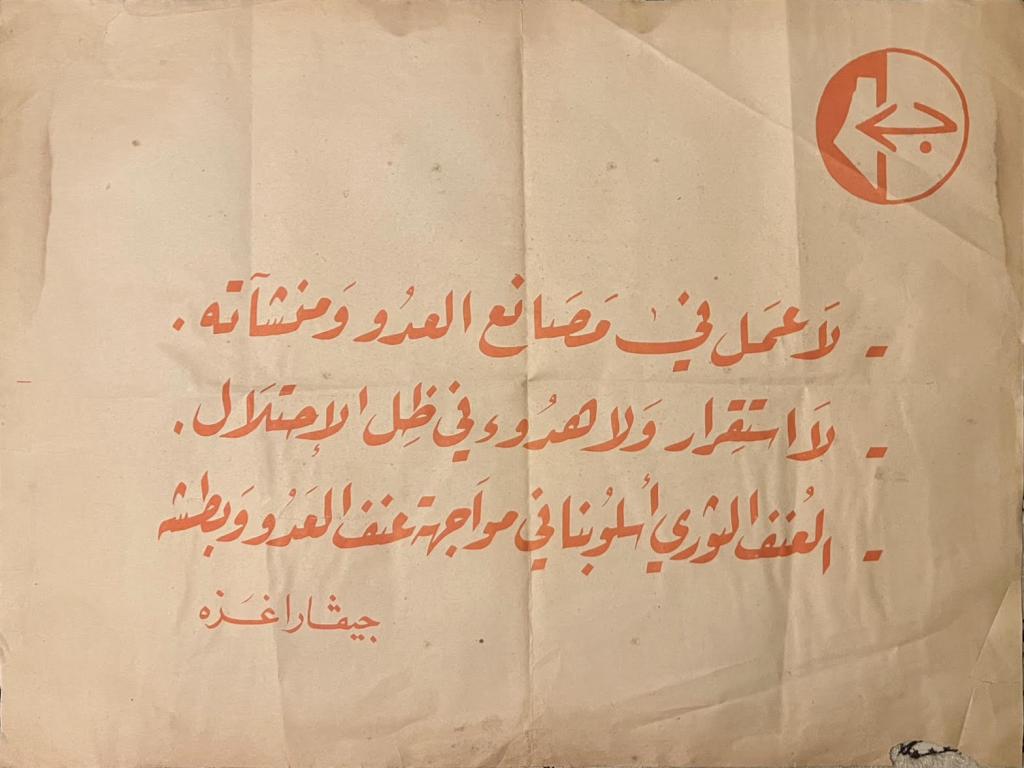 - لَا عَمَل في مَصَانع العدُو وَمنشآته .
- لَا استقِرار وَلا هدُوء في ظِل الإحتلَال .
- العُنف الثوري أسلوُبنا في موَاجهة عنف العَدُو وَبطشه
جيڤارا غَزه